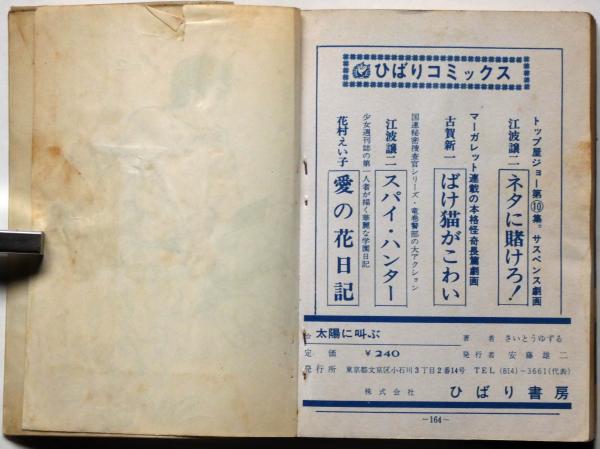 ひばりコミックス
トップ屋ジョー第⑩集。サスペンス劇画
江波譲二 ネタに賭けろ!
マーガレット連載の本格怪奇長篇劇画
古賀新一 ばけ猫がこわい
国連秘密捜査官シリーズ・竜巻警部の大アクション
江波譲二 スパイ・ハンター
少女週刊誌の第一人者が描く華麗な学園日記
花村えい子 愛の花日記
太陽に叫ぶ 著者 さいとうゆずる
定価 ¥240 発行者 安藤雄二
発行所 東京都文京区小石川3丁目2番14号 TEL (814)-3661(代表)
株式会社 ひばり書房
-164-